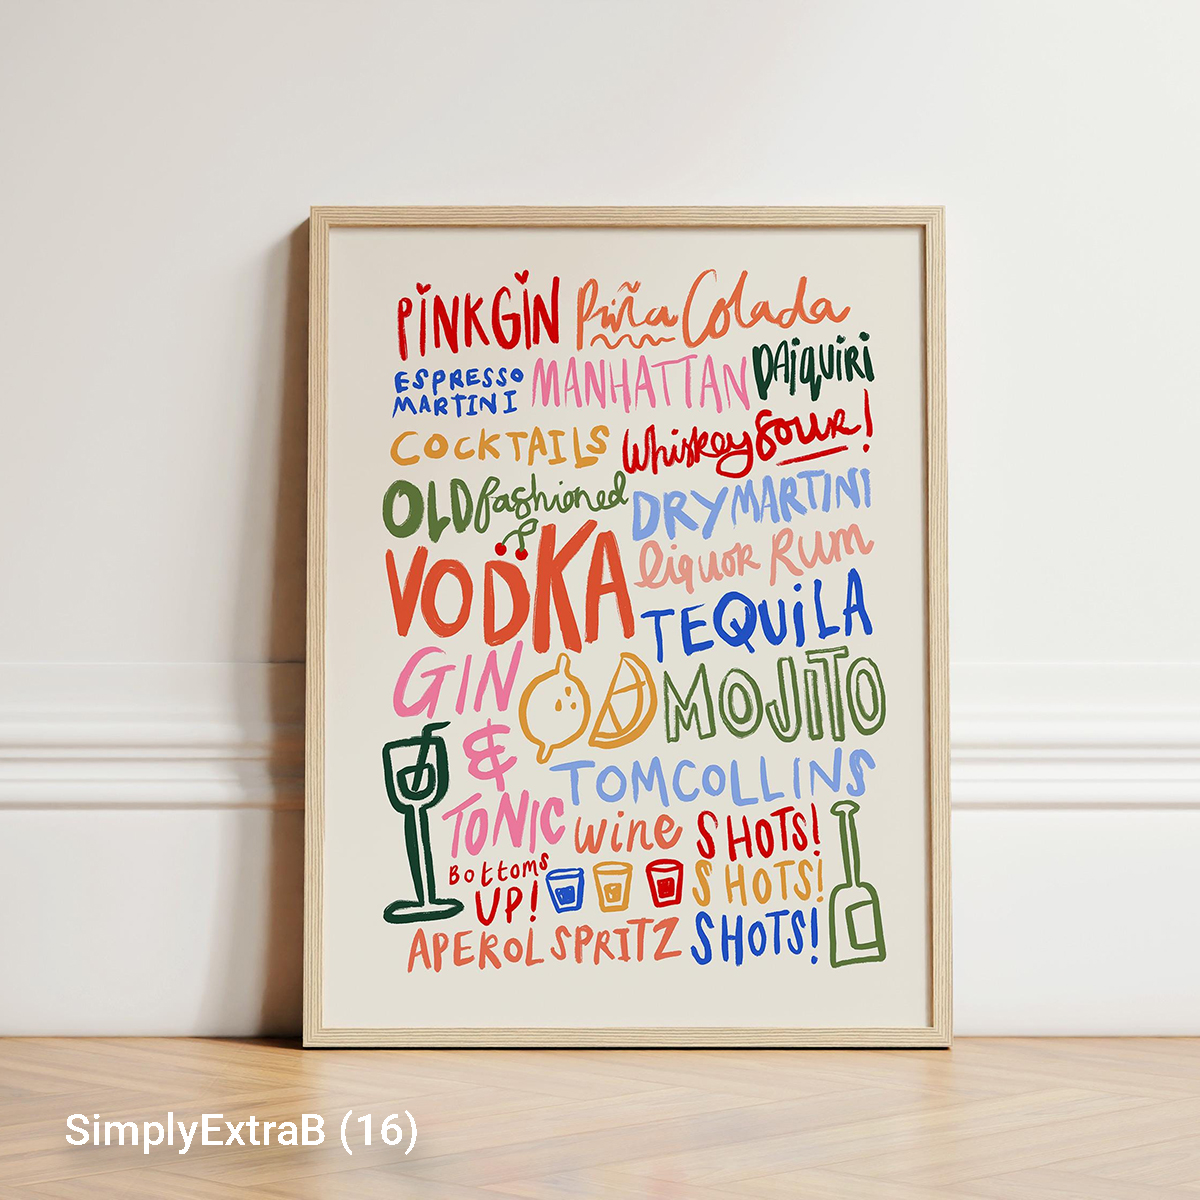 PINK GIN Piña Colada
ESPRESSO MARTINI MANHATTAN DAiQUiRi
COCKTAILS Whiskey SOUR!
OLD fashioned DRY MARTINI
VODKA liquoR RUM
TEQUiLA
GIN MOJITO
&
TONIC TOM COLLINS
wine SHOTS!
Bottoms UP! SHOTS!
APEROL SPRITZ SHOTS!
SimplyExtraB (16)